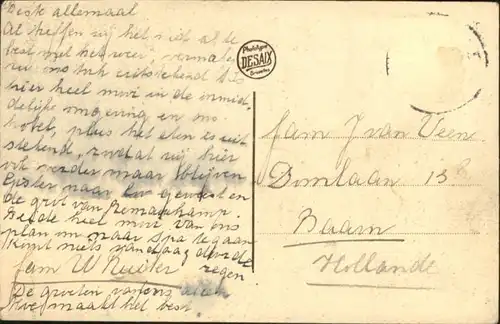 Beste allemaal
Al treffen wij het niet al te
best met het weer, vermaken
we ons toch uitstekend. 't Is
hier heel mooi in de onmid-
delijke omgeving en ons
hotel, plus het eten is uit
stekend, zoodat wij hier
ook verder maar blijven
Gister naar geweest en
de grot van Remouchamp.
Beide heel mooi van ons
plan om naar Spa te gaan
komt niets vandaag door de
regen
fam W
De groeten van ons allen
hoe maakt het best
Phototypie
DESAIX
Bruxelles
fam J van Veen
Domlaan 13
Baarn
Hollande